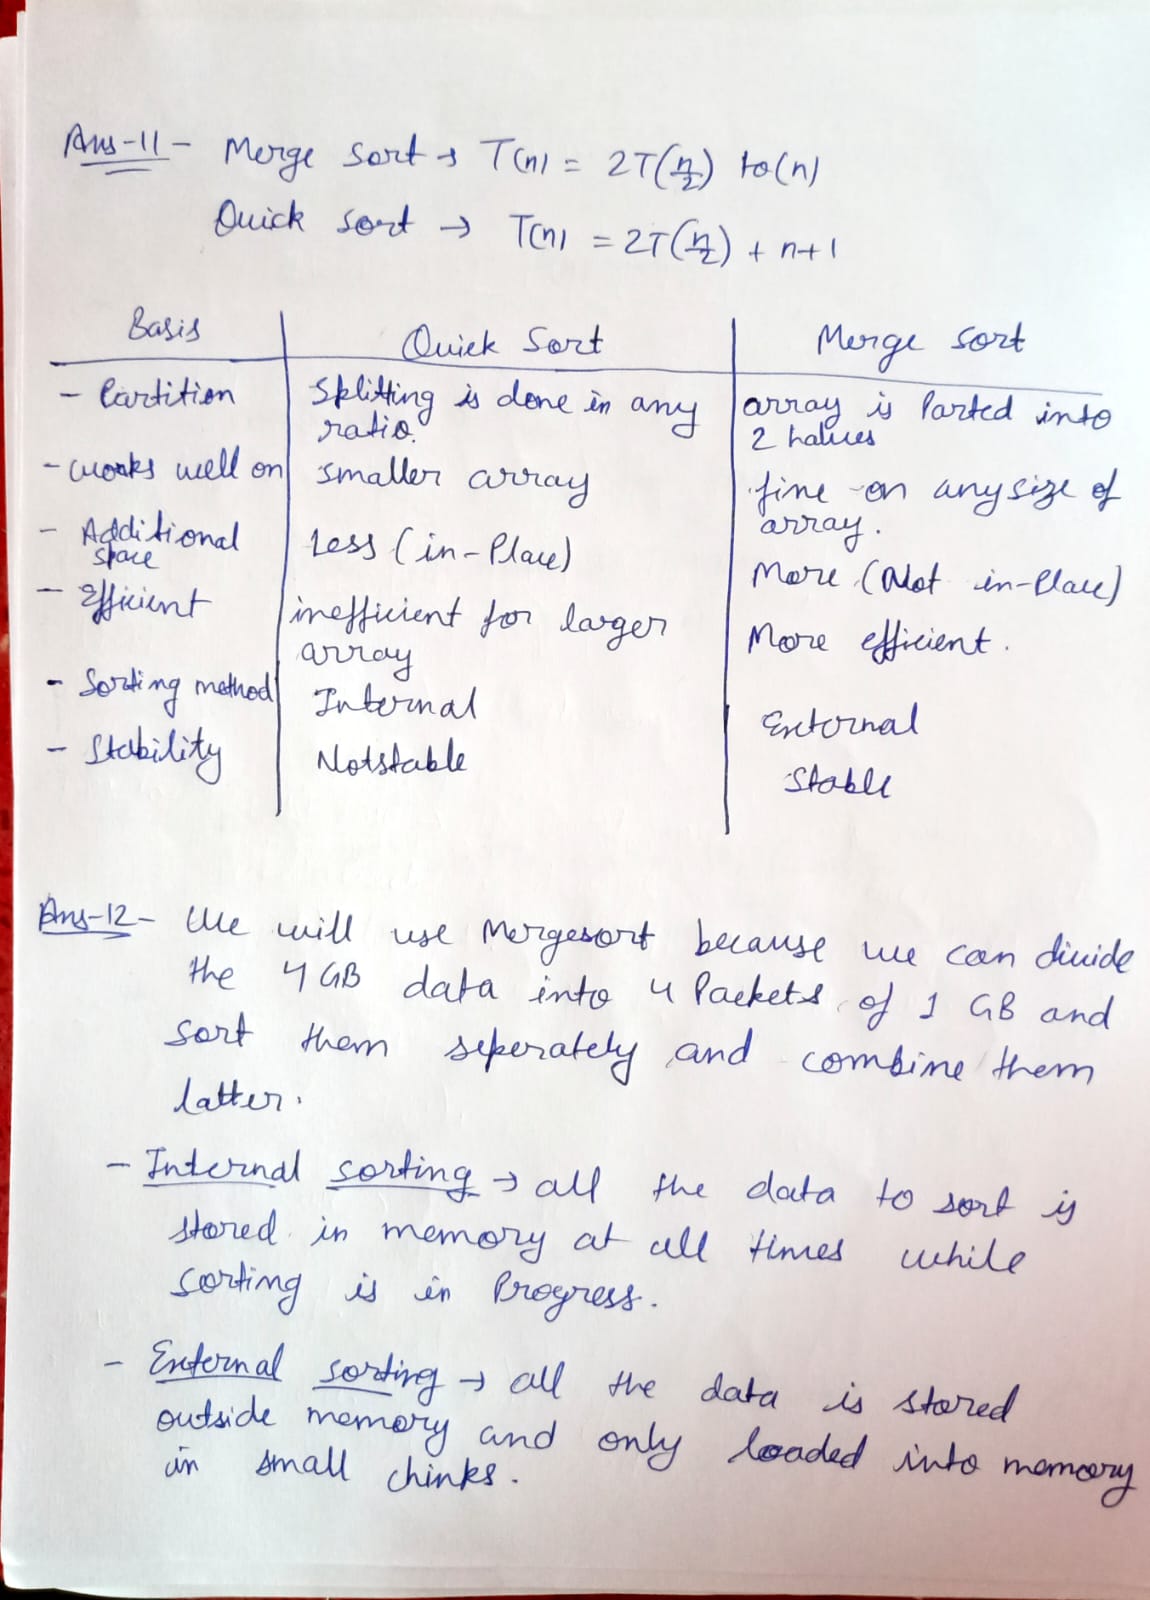 Ans-11 - Merge sort → T(n) = 2T(n/2) to(n)
Quick sort → T(n) = 2T(n/2) + n+1
Basis | Quick Sort | Merge sort
- Partition | Splitting is done in any ratio. | array is Parted into 2 halves
- works well on | smaller array | fine on any size of array.
- Additional space | Less (in-Place) | More (Not in-Place)
- Efficient | inefficient for larger array | More efficient.
- Sorting method | Internal | External
- Stability | Notstable | Stable
Ans-12 - We will use Mergesort because we can divide
the 4 GB data into 4 Packets of 1 GB and
sort them seperately and combine them
latter.
- Internal sorting → all the data to sort is
stored in memory at all times while
sorting is in Progress.
- External sorting → all the data is stored
outside memory and only loaded into memory
in small chinks.